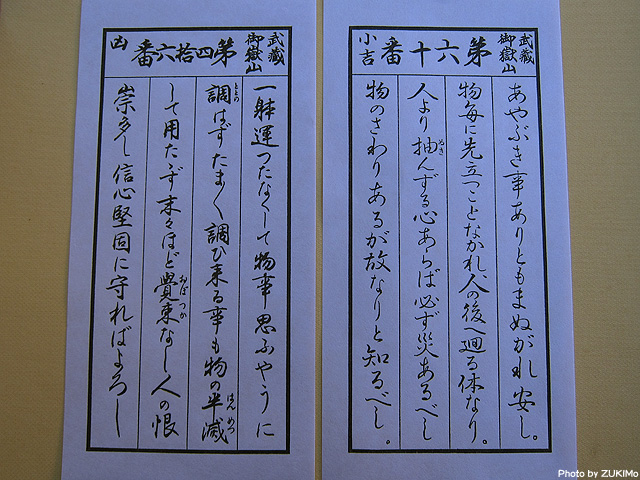 武蔵
御嶽山
第六十番
小吉
あやぶき事ありともまぬがれ安し。
物毎に先立つことなかれ、人の後へ廻る体なり。
人より抽んずる心あらば必ず災あるべし
物のさわりあるが故なりと知るべし。
武蔵
御嶽山
第四拾六番
凶
一躰運つたなくして物事思ふやうに
調はずたま〱調ひ来る事も物の半減
して用たゝず末々ほど覺束なし人の恨
崇多し信心堅固に守ればよろし
Photo by ZUKIMo